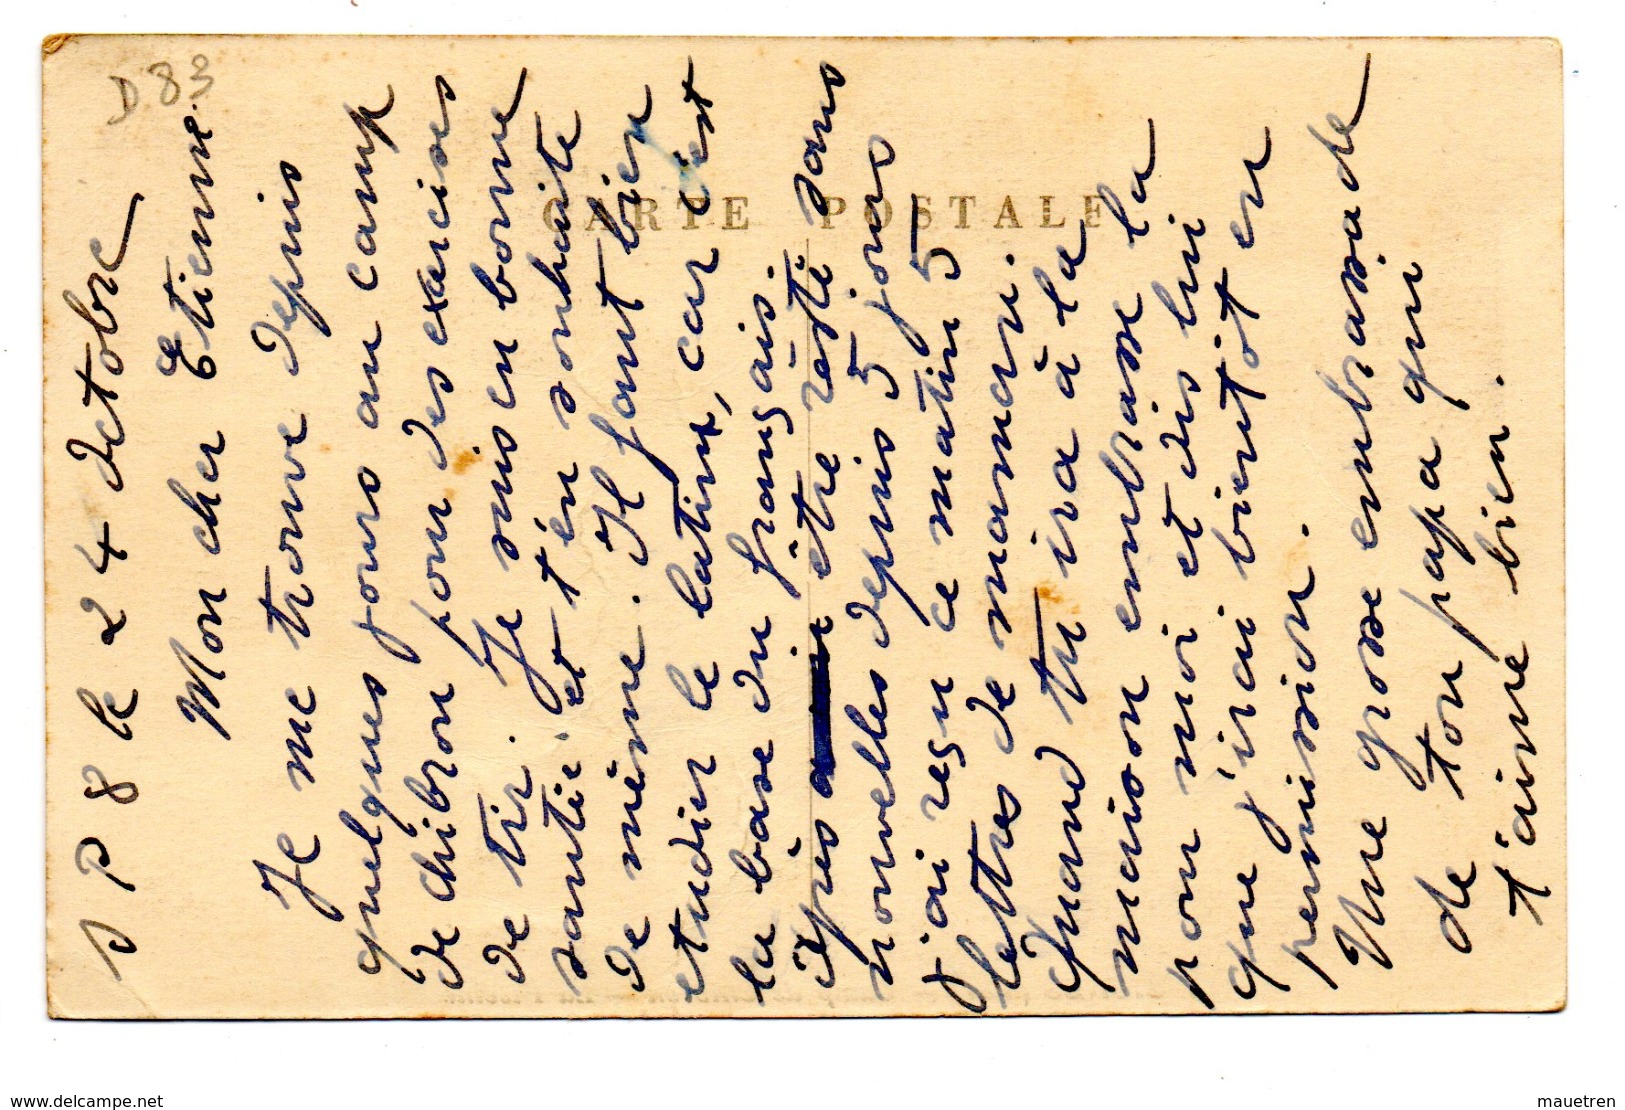 D 83
CARTE POSTALE
S P 8 le 24 Octobre
Mon cher Etienne.
Je me trouve depuis
quelques jours au camp
de Chibron pour des exercices
de tir. Je suis en bonne
santée et t'en souhaite
de même. Il faut bien
etudier le latin, car c'est
la base du français.
Après être resté sans
nouvelles depuis 5 jours
j'ai reçu ce matin 5
lettres de maman.
Quand tu ira à la
maison embrasse la
pour moi et dis lui
que j'irai bientôt en
permission.
Une grosse embrassade
de ton papa qui
t'aime bien.
www.delcampe.net
mauetren